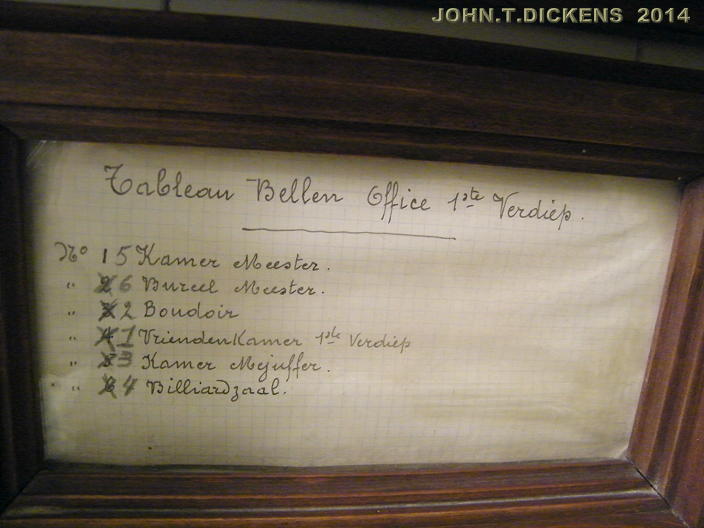 JOHN.T.DICKENS 2014
Tableau Bellen Office 1ste Verdiep.
No 1 5 Kamer Meester.
" 2 6 Bureel Meester.
" 3 2 Boudoir
" 4 1 VriendenKamer 1ste Verdiep
" 5 3 Kamer Mejuffer.
" 6 4 Billiardzaal.